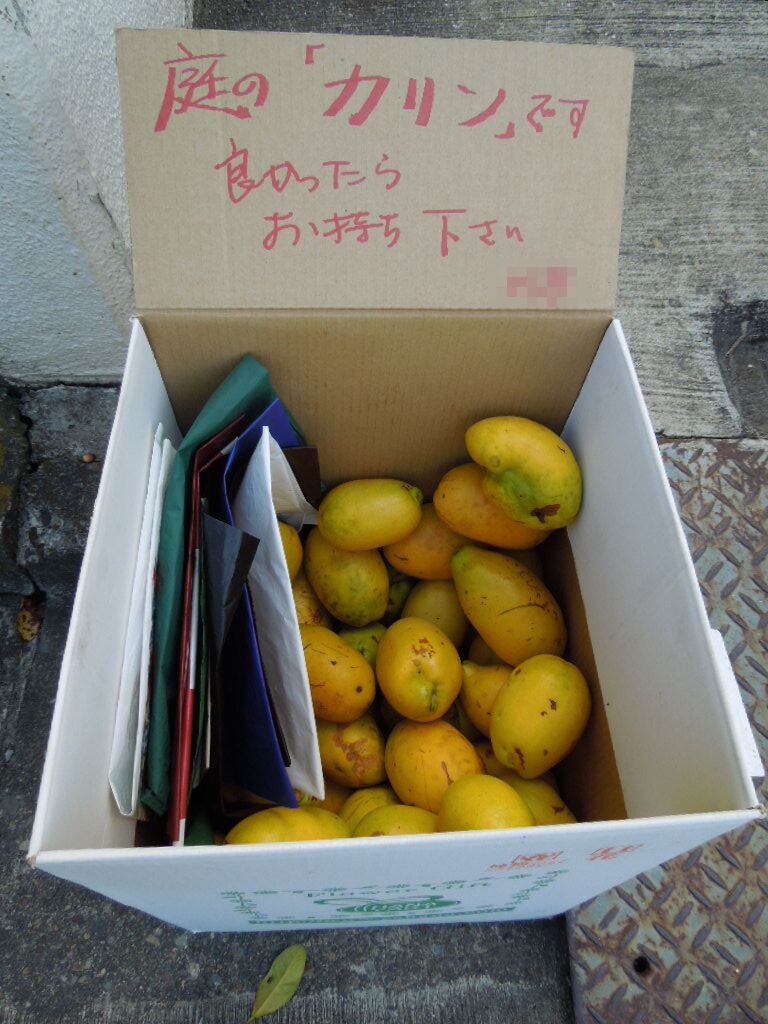 庭の「カリン」です
良かったら
お持ち下さい